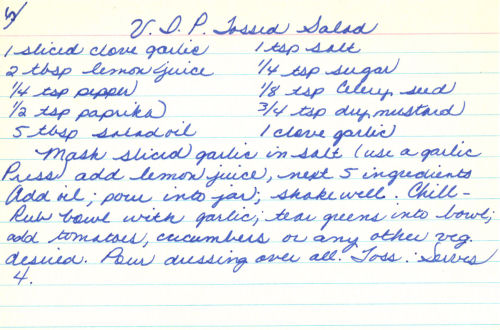 V. I. P. Tossed Salad
1 sliced clove garlic 1 tsp salt
2 tbsp lemon juice 1/4 tsp sugar
1/4 tsp pepper 1/8 tsp Celery seed
1/2 tsp paprika 3/4 tsp dry mustard
5 tbsp salad oil 1 clove garlic
Mash sliced garlic in salt (use a garlic
Press) add lemon juice, next 5 ingredients
Add oil; pour into jar; shake well. Chill-
Rub bowl with garlic; tear greens into bowl;
add tomatoes, cucumbers or any other veg.
desired. Pour dressing over all. Toss. Serves
4.